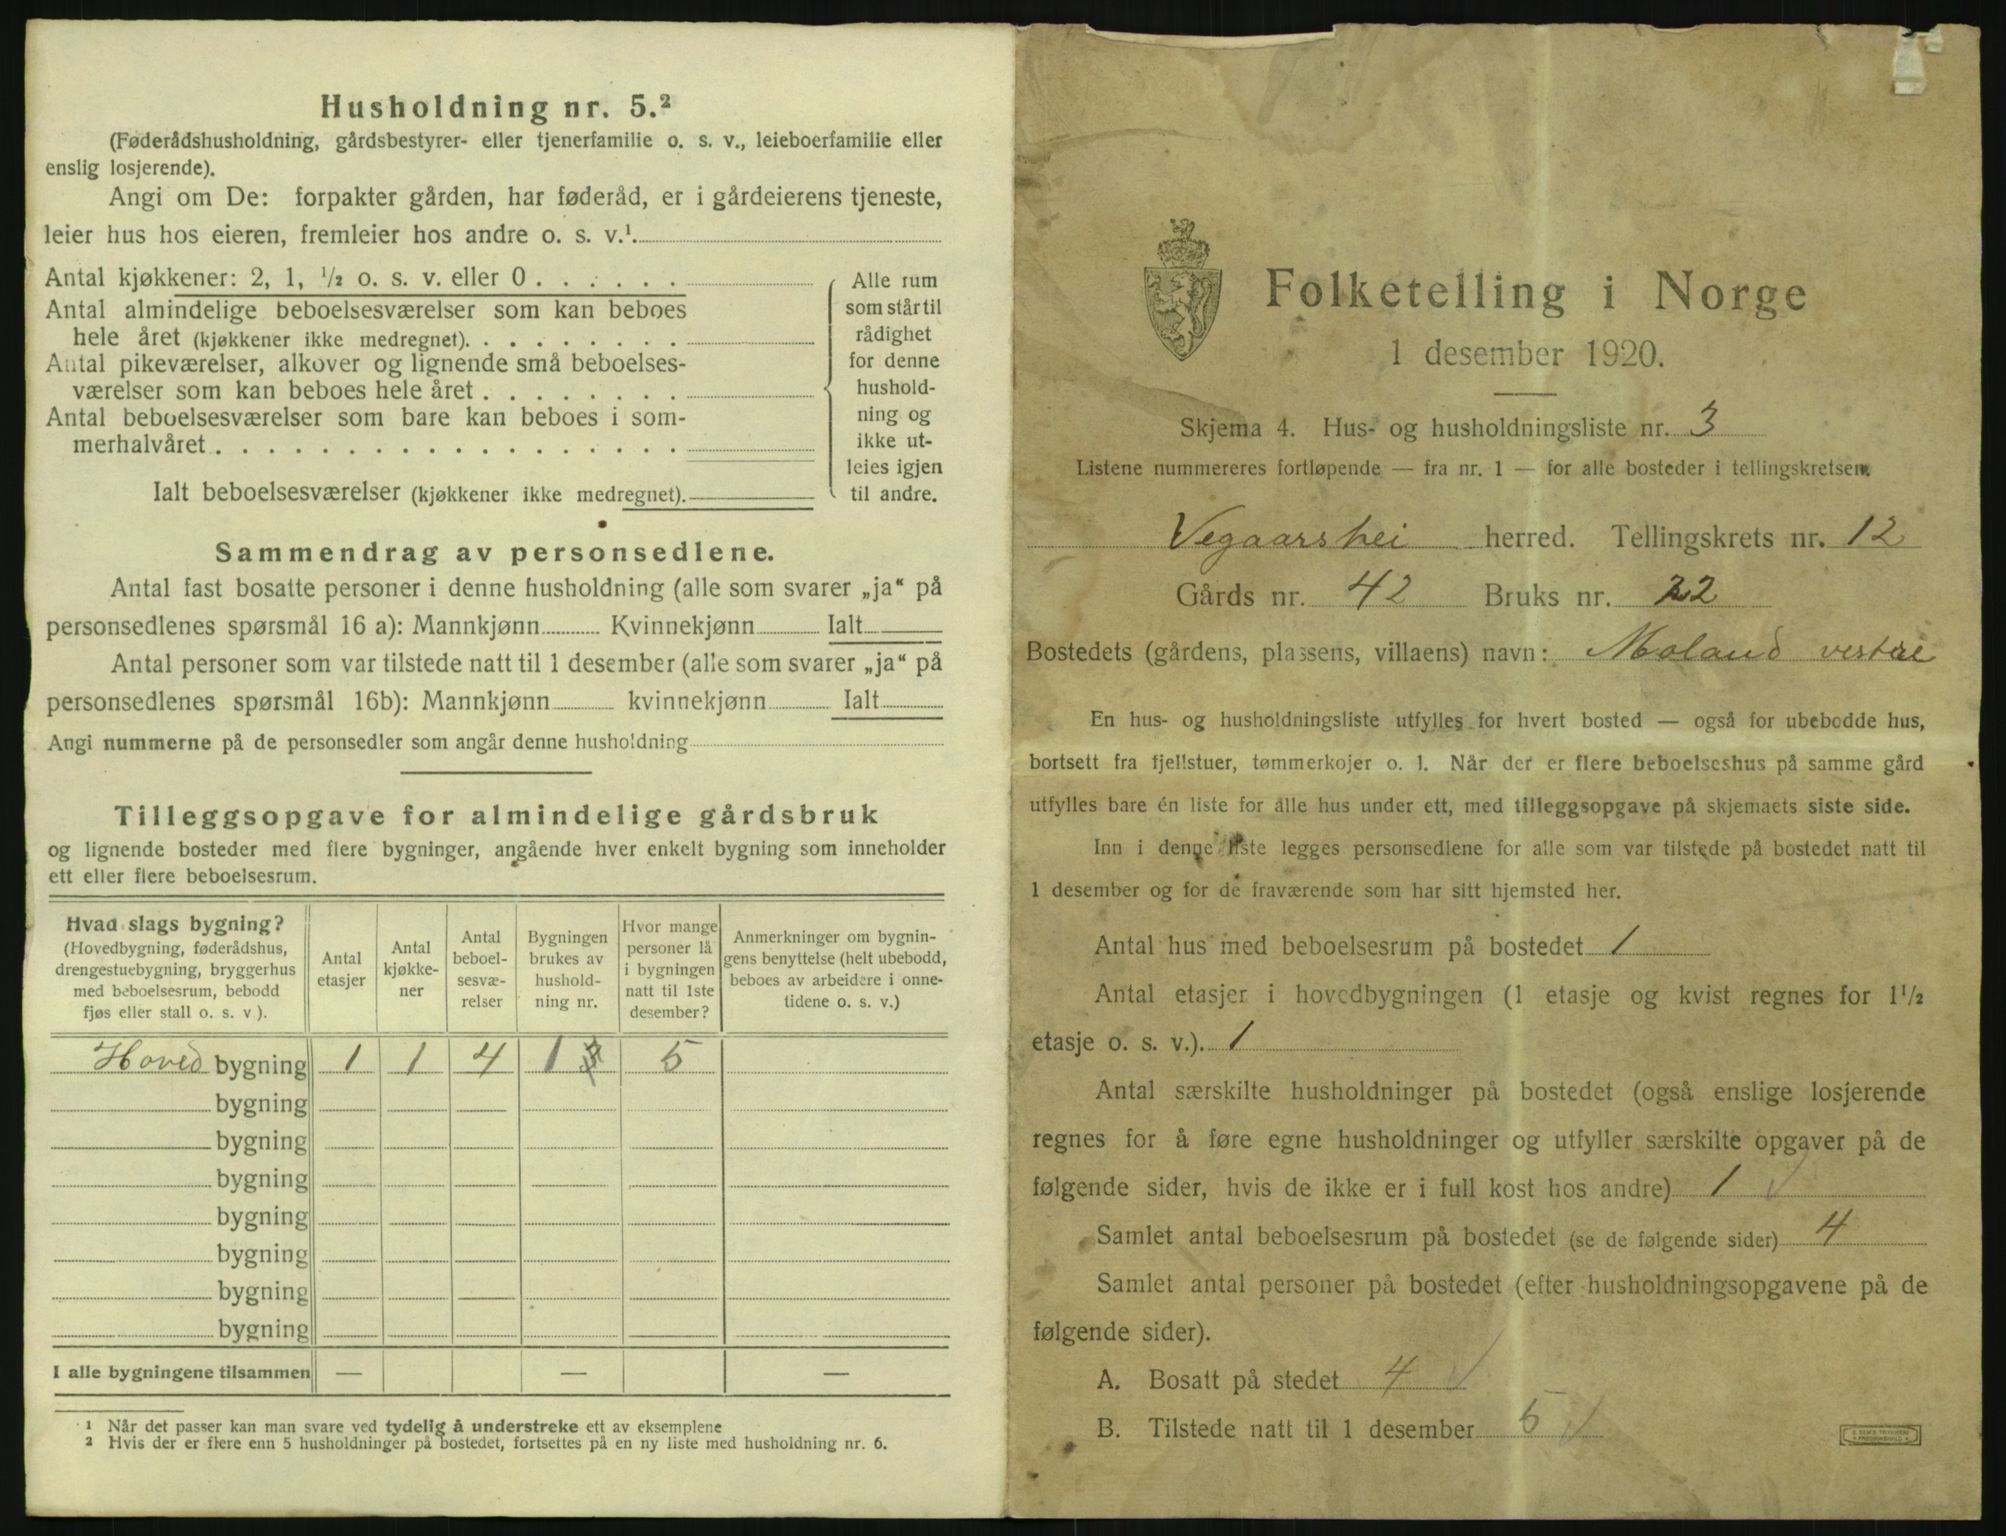 Husholdning nr. 5.²
(Føderådshusholdning, gårdsbestyrer- eller tjenerfamilie o. s. v., leieboerfamilie eller
enslig losjerende).
Angi om De: forpakter gården, har føderåd, er i gårdeierens tjeneste,
leier hus hos eieren, fremleier hos andre o. s. v.¹
Antal kjøkkener: 2, 1, ½ o. s. v. eller 0 . . . . . .
Antal almindelige beboelsesværelser som kan beboes
hele året (kjøkkener ikke medregnet). . . . . . . . .
Antal pikeværelser, alkover og lignende små beboelses-
værelser som kan beboes hele året . . . . . . . .
Antal beboelsesværelser som bare kan beboes i som-
merhalvåret . . . . . . . . . . . . . . . . . .
Ialt beboelsesværelser (kjøkkener ikke medregnet).
Alle rum
som står til
rådighet
for denne
hushold-
ning og
ikke ut-
leies igjen
til andre.
Sammendrag av personsedlene.
Antal fast bosatte personer i denne husholdning (alle som svarer „ja“ på
personsedlenes spørsmål 16 a): Mannkjønn Kvinnekjønn Ialt
Antal personer som var tilstede natt til 1 desember (alle som svarer „ja“ på
personsedlenes spørsmål 16b): Mannkjønn kvinnekjønn Ialt
Angi nummerne på de personsedler som angår denne husholdning
Tilleggsopgave for almindelige gårdsbruk
og lignende bosteder med flere bygninger, angående hver enkelt bygning som inneholder
ett eller flere beboelsesrum.
Hvad slags bygning?
(Hovedbygning, føderådshus,
drengestuebygning, bryggerhus
med beboelsesrum, bebodd
fjøs eller stall o. s. v ).
Antal
etasjer
Antal
kjøkke-
ner
Antal
beboel-
sesvæ-
relser
Bygningen
brukes av
hushold-
ning nr.
Hvor mange
personer lå
i bygningen
natt til 1ste
desember?
Anmerkninger om bygnin-
gens benyttelse (helt ubebodd,
beboes av arbeidere i onne-
tidene o. s. v.)
Hoved bygning 1 1 4 1 5
bygning
bygning
bygning
bygning
bygning
bygning
bygning
I alle bygningene tilsammen — — —
¹ Når det passer kan man svare ved tydelig å understreke ett av eksemplene
² Hvis der er flere enn 5 husholdninger på bostedet, fortsettes på en ny liste med husholdning nr. 6.
Folketelling i Norge
1 desember 1920.
Skjema 4. Hus- og husholdningsliste nr. 3
Listene nummereres fortløpende — fra nr. 1 — for alle bosteder i tellingskretsen.
Vegaarshei herred. Tellingskrets nr. 12
Gårds nr. 42 Bruks nr. 22
Bostedets (gårdens, plassens, villaens) navn: Moland vestre
En hus- og husholdningsliste utfylles for hvert bosted — også for ubebodde hus,
bortsett fra fjellstuer, tømmerkojer o. l. Når der er flere beboelseshus på samme gård
utfylles bare én liste for alle hus under ett, med tilleggsopgave på skjemaets siste side.
Inn i denne liste legges personsedlene for alle som var tilstede på bostedet natt til
1 desember og for de fraværende som har sitt hjemsted her.
Antal hus med beboelsesrum på bostedet 1
Antal etasjer i hovedbygningen (1 etasje og kvist regnes for 1½
etasje o. s. v.). 1
Antal særskilte husholdninger på bostedet (også enslige losjerende
regnes for å føre egne husholdninger og utfyller særskilte opgaver på de
følgende sider, hvis de ikke er i full kost hos andre) 1 √
Samlet antal beboelsesrum på bostedet (se de følgende sider) 4
Samlet antal personer på bostedet (efter husholdningsopgavene på de
følgende sider).
A. Bosatt på stedet 4 √
B. Tilstede natt til 1 desember 5 √